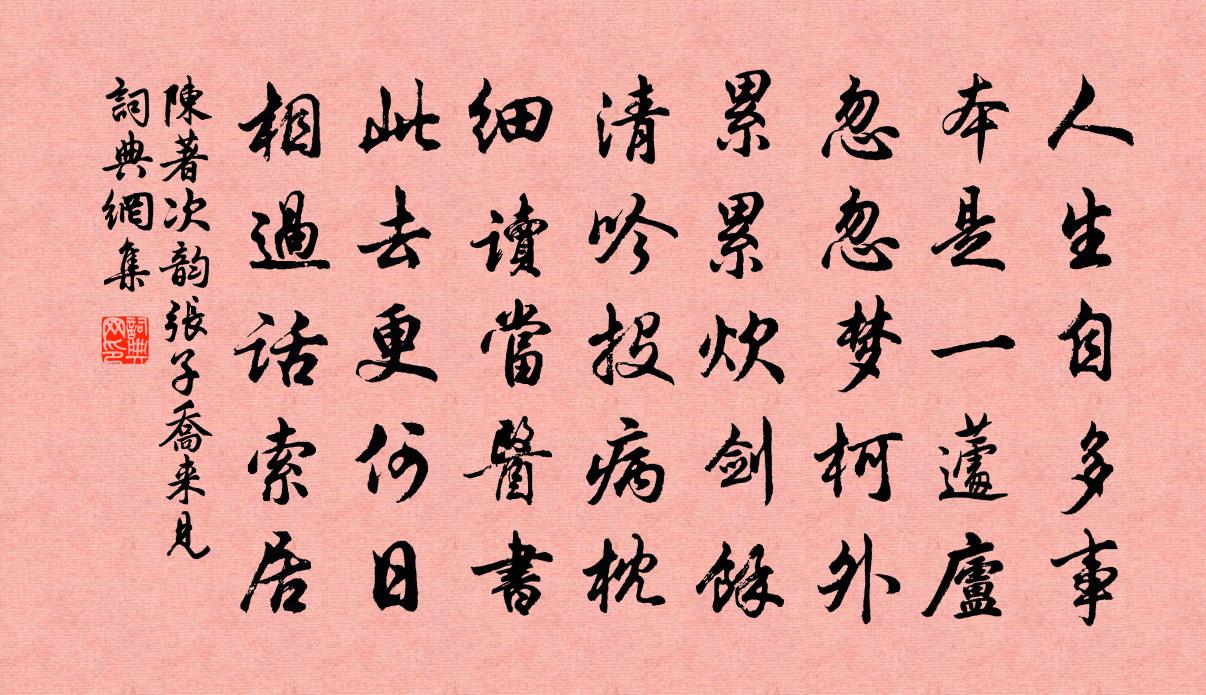 人生自多事
本是一蘧廬
忽忽梦柯外
累累炊剑餘
清吟投病枕
細讀當醫書
此去更何日
相過話索居
陳著次韵張子喬来見
詞典網集
詞典
网印